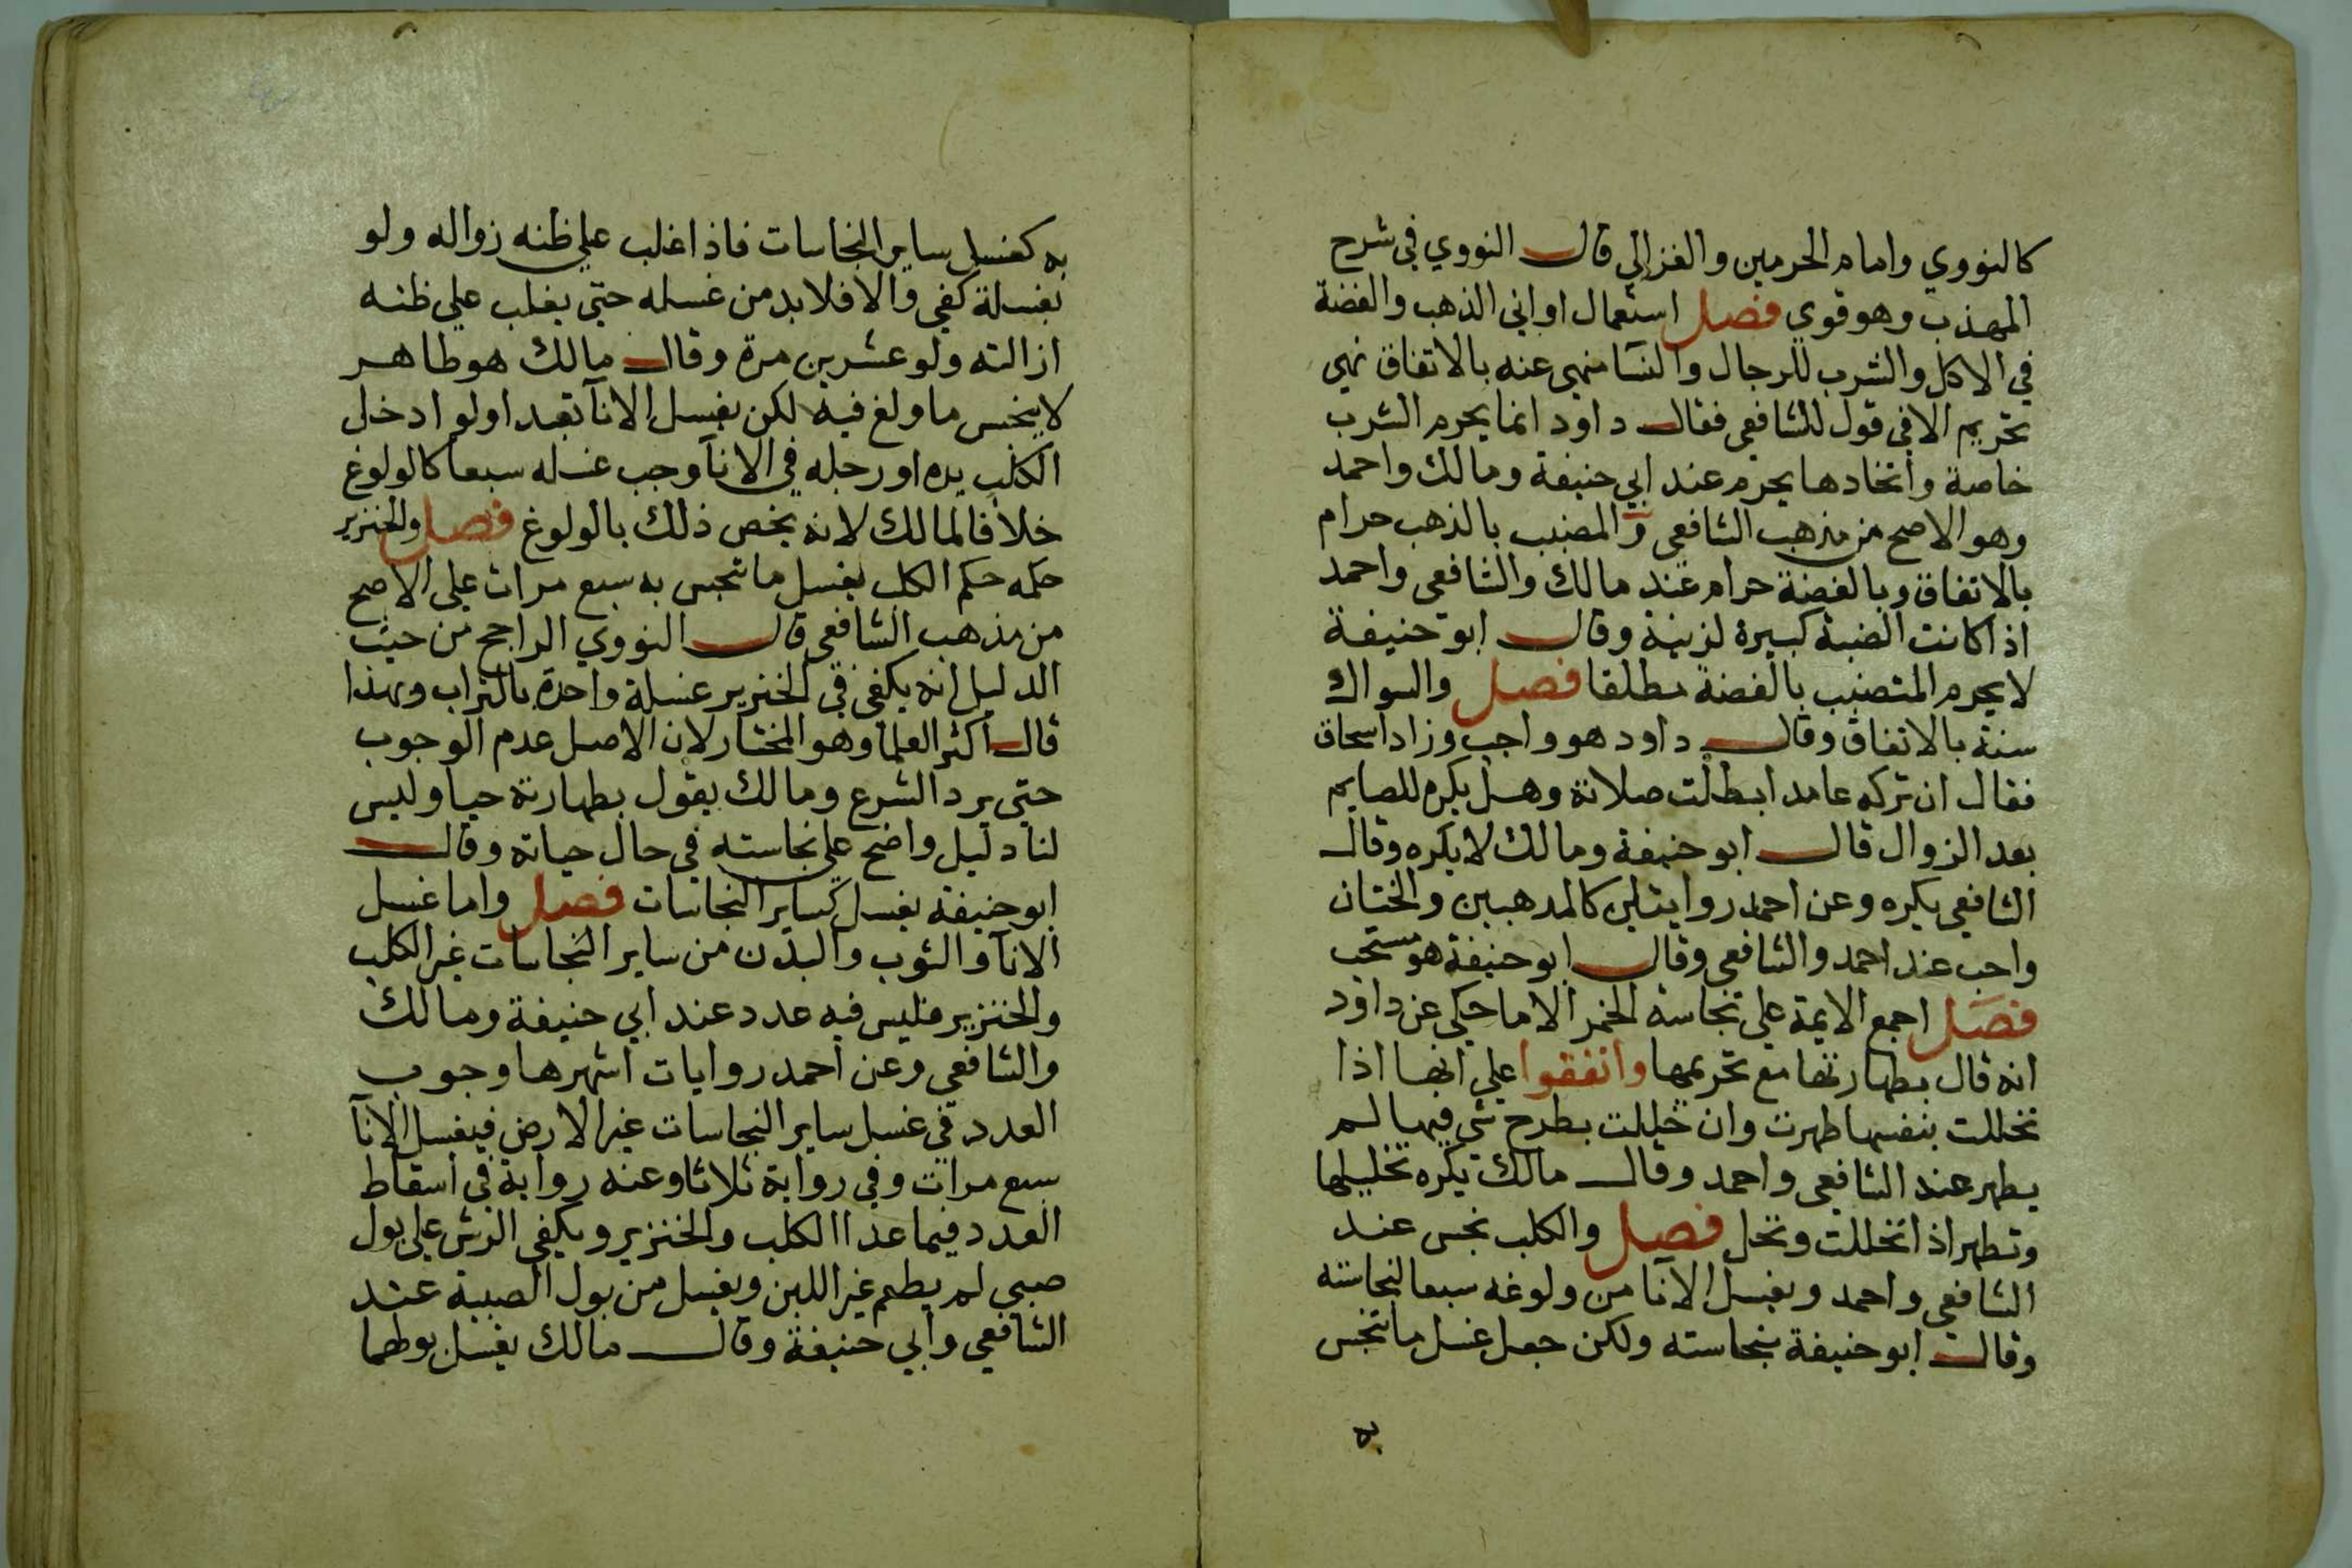 كالنووي وامام الحرمين والغزالي قال النووي في شرح
المهذب وهو قوي فصل استعمال اواني الذهب والفضة
في الاكل والشرب للرجال والنسا منهي عنه بالاتفاق نهي
تحريم الا في قول للشافعي فقال داود انما يحرم الشرب
خاصة واتخادها يحرم عند ابي حنيفة ومالك واحمد
وهو الاصح من مذهب الشافعي والمضبب بالذهب حرام
بالاتفاق وبالفضة حرام عند مالك والشافعي واحمد
اذا كانت الضبة كبيرة لزينة وقال ابو حنيفة
لا يحرم المتضبب بالفضة مطلقا فصل والسواك
سنة بالاتفاق وقال داود هو واجب وزاد اسحاق
فقال ان تركه عامدا بطلت صلاته وهل يكره للصايم
بعد الزوال قال ابو حنيفة ومالك لا يكره وقال
الشافعي يكره وعن احمد روايتلين كالمدهبين والختان
واجب عند احمد والشافعي وقال ابو حنيفة هو مستحب
فصل اجمع الايمة علي نجاسة الخمر الا ما حكي عن داود
انه قال بطهارتها مع تحريمها واتفقوا علي انها اذا
تخللت بنفسها طهرت وان خللت بطرح شي فيها لم
يطهر عند الشافعي واحمد وقال مالك يكره تخليلها
وتطهر اذا تخللت وتحل فصل والكلب نجس عند
الشافعي واحمد ويغسل الانا من ولوغه سبعا لنجاسته
وقال ابو حنيفة بنجاسته ولكن جعل غسل ما تنجس
به
به كغسل ساير النجاسات فاذا غلب علي ظنه زواله ولو
بغسلة كفي والا فلا بد من غسله حتي يغلب علي ظنه
ازالته ولو عشرين مرة وقال مالك هو طاهر
لا ينجس ما ولغ فيه لكن يغسل الانآ تعبدا ولو ادخل
الكلب يده او رجله في الانآ وجب غسله سبعا كالولوغ
خلافا لمالك لانه يخص ذلك بالولوغ فصل والخنزير
حكمه حكم الكلب يغسل ما تنجس به سبع مرات علي الاصح
من مذهب الشافعي قال النووي الراجح من حيث
الدليل انه يكفي في الخنزير غسلة واحدة بالتراب وبهذا
قال اكثر العلما وهو المختار لان الاصل عدم الوجوب
حتي يرد الشرع ومالك يقول بطهارته حيا وليس
لنا دليل واضح علي نجاسته في حال حياته وقال
ابو حنيفة يغسل كساير النجاسات فصل واما غسل
الانآ والثوب والبدن من ساير النجاسات غير الكلب
والخنزير فليس فيه عدد عند ابي حنيفة ومالك
والشافعي وعن احمد روايات اشهرها وجوب
العدد في غسل ساير النجاسات غير الارض فيغسل الانآ
سبع مرات وفي رواية ثلاثا وعنه رواية في اسقاط
العدد فيما عدا الكلب والخنزير ويكفي الرش علي بول
صبي لم يطعم غير اللبن ويغسل من بول الصبية عند
الشافعي وابي حنيفة وقال مالك يغسل بولهما